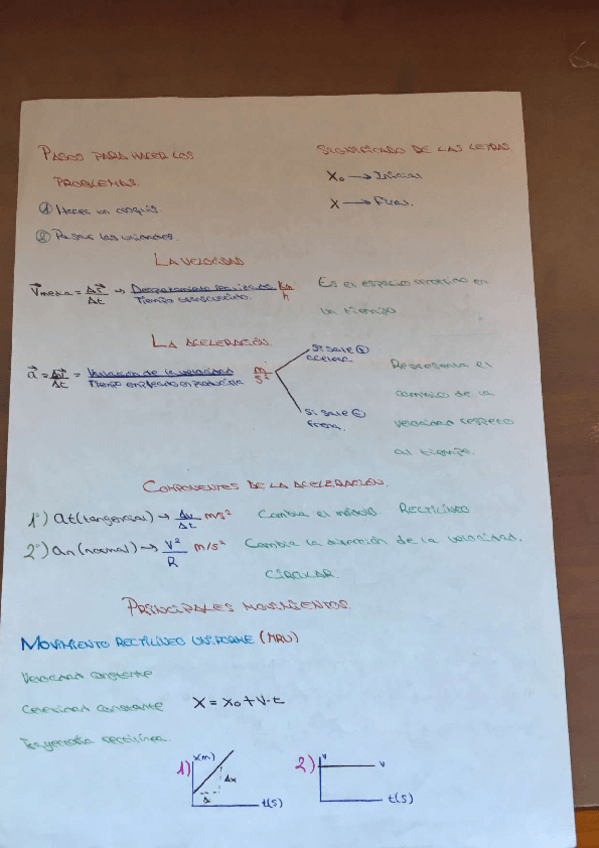 PASOS PARA HACER LOS
PROBLEMAS.
① Haces un croquis.
② Pasar las unidades.
SIGNIFICADO DE LAS LETRAS
X₀ → Inicial
X → Final.
LA VELOCIDAD
V⃗media = Δr⃗/Δt → Desplazamiento realizado/Tiempo transcurrido. Km/h
Es el espacio recorrido en
un tiempo
LA ACELERACIÓN.
a⃗ = Δv⃗/Δt = Variación de la velocidad/Tiempo empleado en producirla m/s²
Si sale ⊕
acelera.
Si sale ⊖
frena.
Representa el
cambio de la
velocidad respecto
al tiempo.
COMPONENTES DE LA ACELERACIÓN.
1º) at (tangencial) → Δv/Δt m/s² Cambia el módulo RECTILÍNEO
2º) an (normal) → V²/R m/s² Cambia la dirección de la velocidad.
CIRCULAR.
PRINCIPALES MOVIMIENTOS.
MOVIMIENTO RECTILÍNEO UNIFORME (MRU)
Velocidad constante
Celeridad constante X = X₀ + V·t
Trayectoria rectilínea.
1) x(m) Δx t(s)
2) v v t(s)